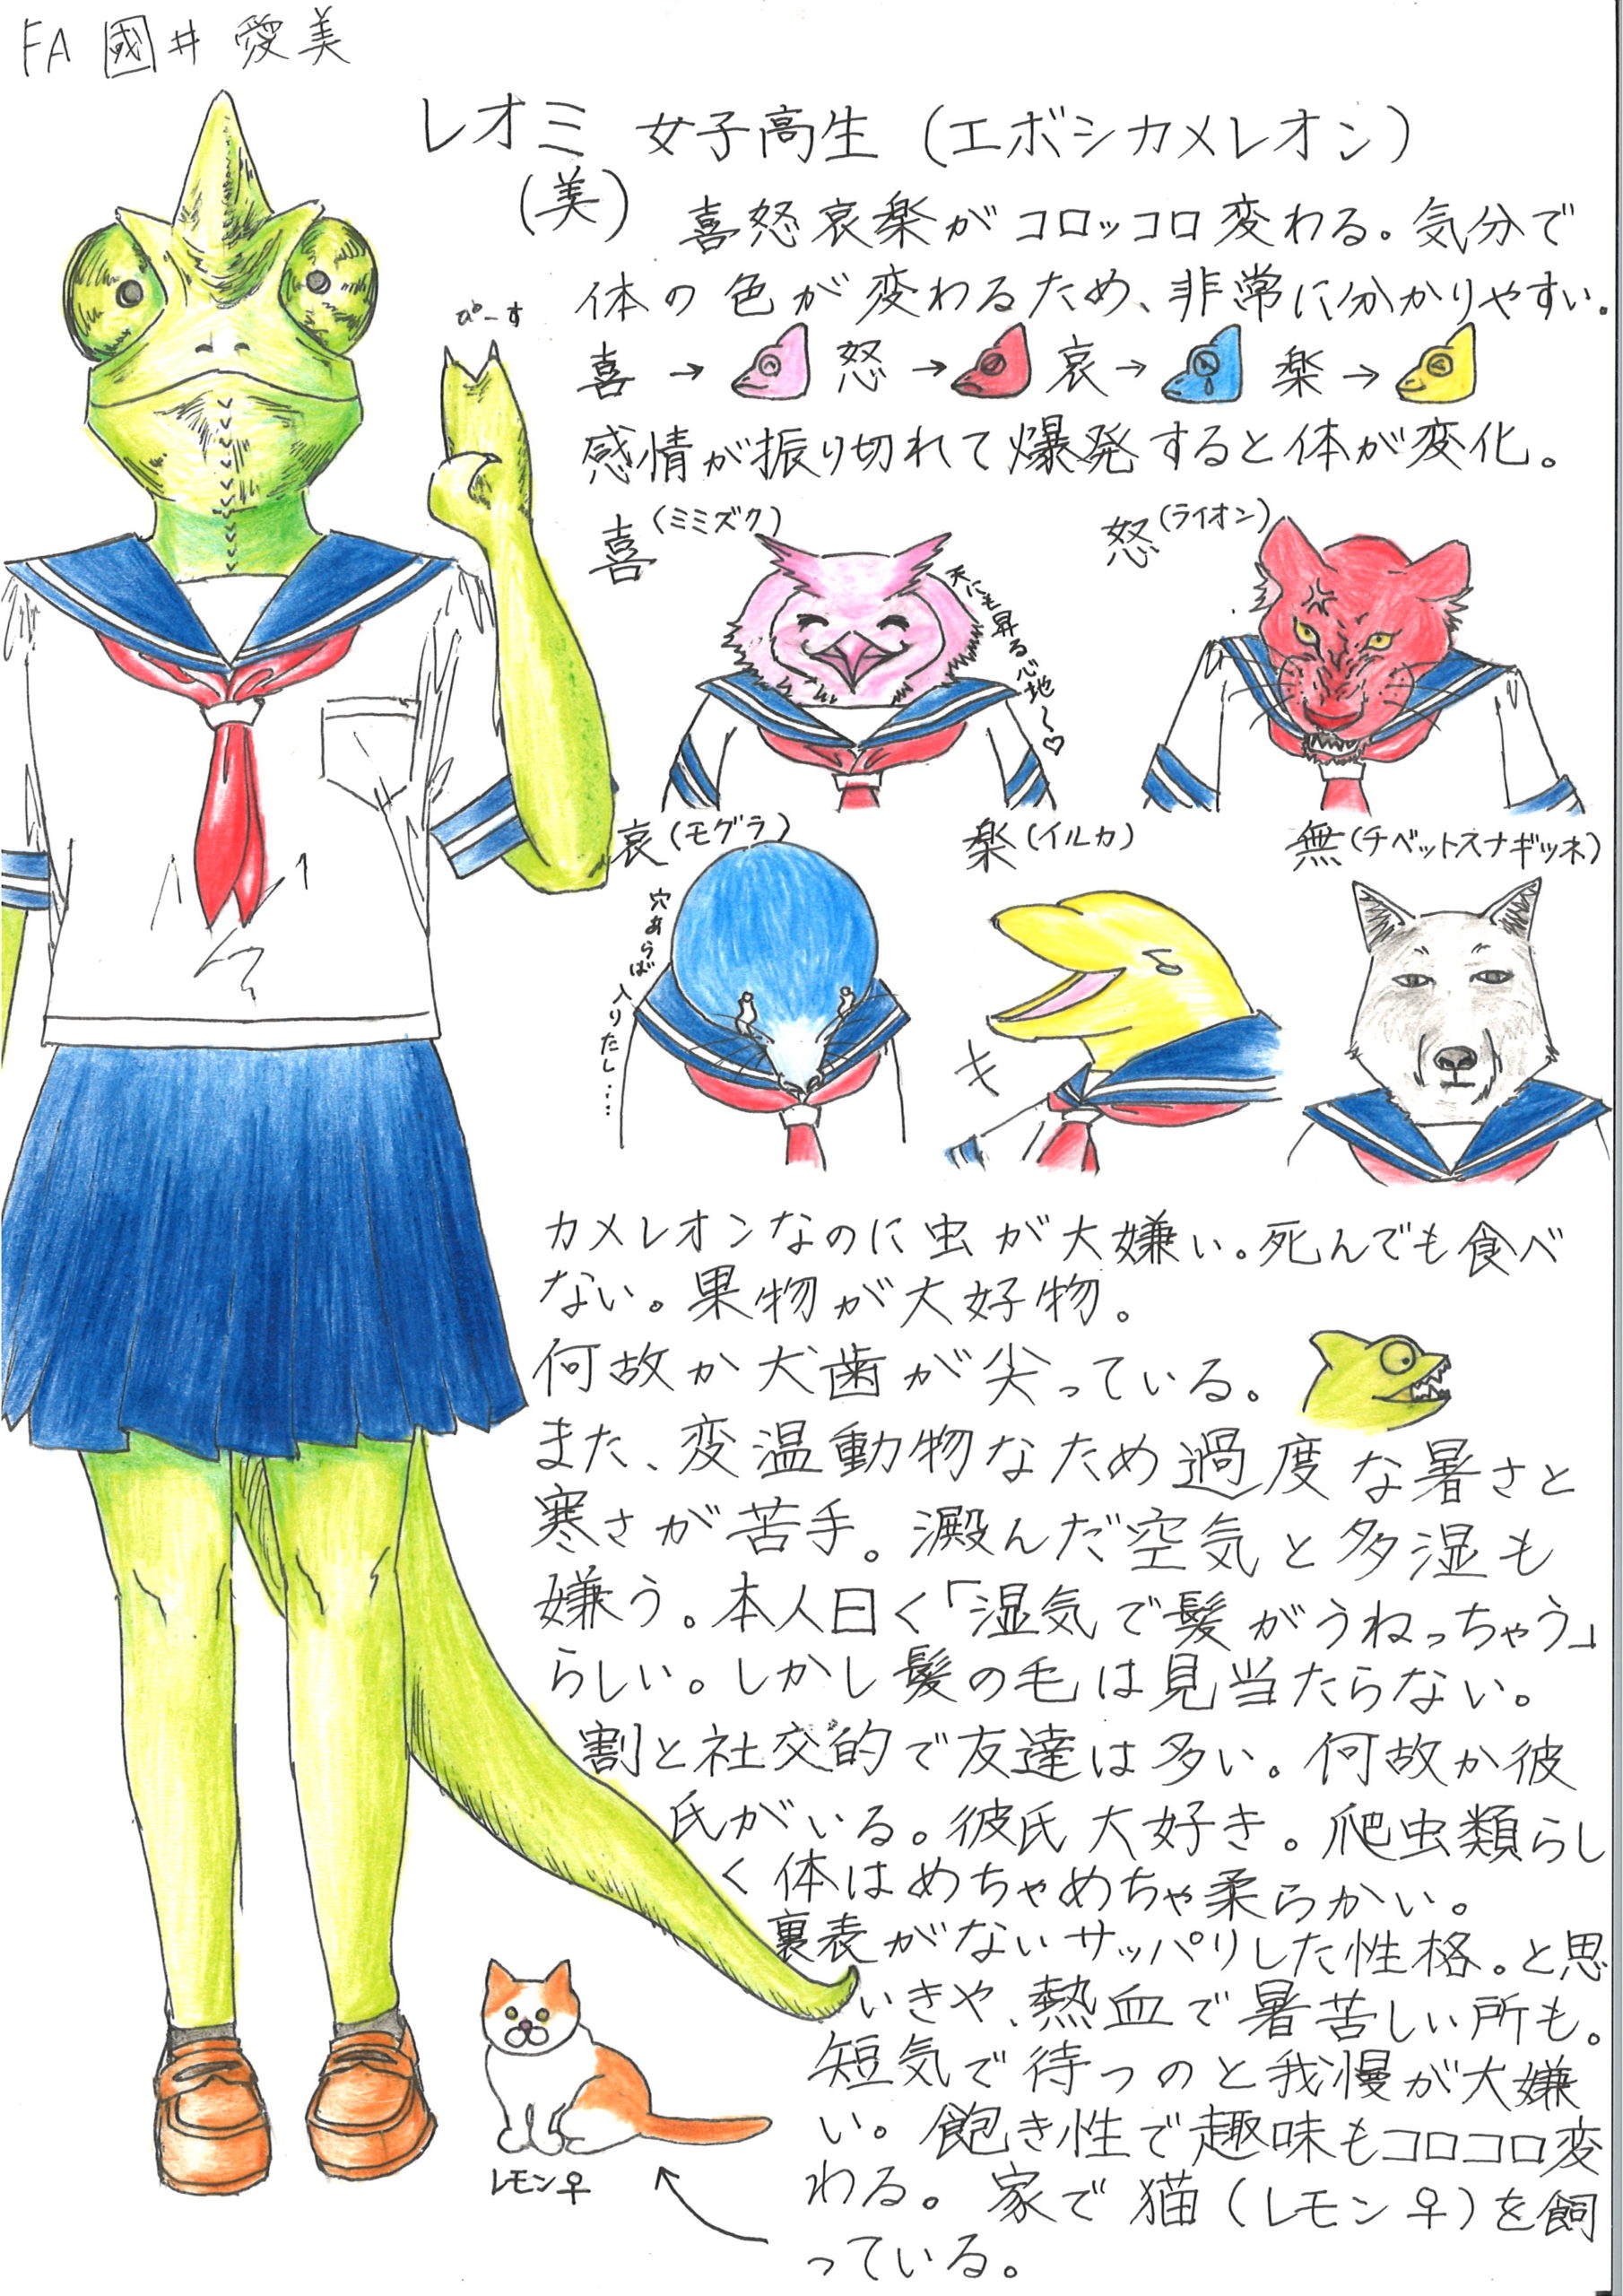 FA 國井 愛美
レオミ 女子高生 (エボシカメレオン)
(美)
喜怒哀楽がコロッコロ変わる。気分で
体の色が変わるため、非常に分かりやすい。
ぴーす
喜→ 怒→ 哀→ 楽→
感情が振り切れて爆発すると体が変化。
喜(ミミズク)
天にも昇る心地〜♡
怒(ライオン)
哀(モグラ)
穴あらば入りたし……
楽(イルカ)
無(チベットスナギツネ)
カメレオンなのに虫が大嫌い。死んでも食べ
ない。果物が大好物。
何故か犬歯が尖っている。
また、変温動物なため過度な暑さと
寒さが苦手。澱んだ空気と多湿も
嫌う。本人曰く「湿気で髪がうねっちゃう」
らしい。しかし髪の毛は見当たらない。
割と社交的で友達は多い。何故か彼
氏がいる。彼氏大好き。爬虫類らし
く体はめちゃめちゃ柔らかい。
裏表がないサッパリした性格。と思
いきや、熱血で暑苦しい所も。
短気で待つのと我慢が大嫌
い。飽き性で趣味もコロコロ変
わる。家で猫(レモン♀)を飼
っている。
レモン♀